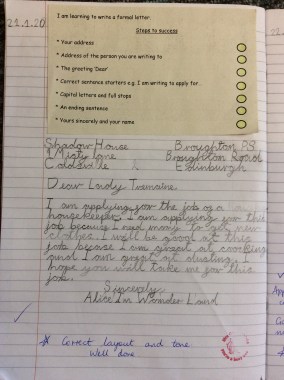 21.1.20
I am learning to write a formal letter.
Steps to success
* Your address
* Address of the person you are writing to
* The greeting 'Dear'
* Correct sentence starters e.g. I am writing to apply for..
* Capital letters and full stops
* An ending sentence
* Yours sincerely and your name
Shadow House Broughton PS
1 Misty lane Broughton Road
Coldsville Edinburgh
Dear Lady Tremaine,
I am applying for the job of a
housekeeper. I am applying for this
job because I need money to get new
clothes. I will be good at this
job because I am great at cooking
and I am great at dusting. I
hope you will take me for this
job.
Sincerely,
Alice In Wonder Land
Correct layout and tone
Well done